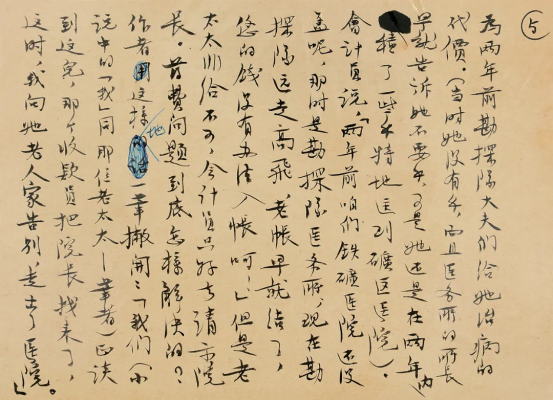 5
为两年前勘探队大夫们给她治病的
代价。(当时她没有 ,而且医务所的所长
早就告诉她不要 ,可是她还是在两年内
积了一些 特地送到矿区医院)。
会计员说,「两年前咱们铁矿医院还没
盖呢,那时是勘探队医务所,现在勘
探队远走高飞,老帐早就结了,
您的钱没有办法入帐呵,」但是老
太太非给不可,会计员只好去请示院
长。药费问题到底怎样解决的?
作者用这样地一笔撇开:「我们(小
说中的「我」同那位老太太—笔者)正谈
到这儿,那个收款员把院长找来了,
这时,我向她老人家告别,走出了医院。」